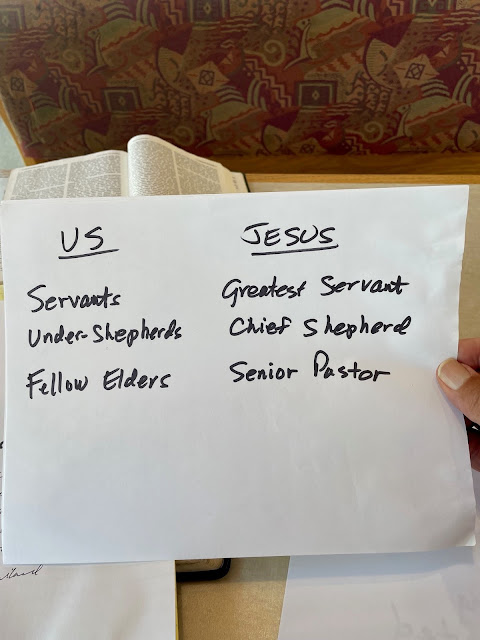 US JESUS
Servants Greatest Servant
Under-Shepherds Chief Shepherd
Fellow Elders Senior Pastor